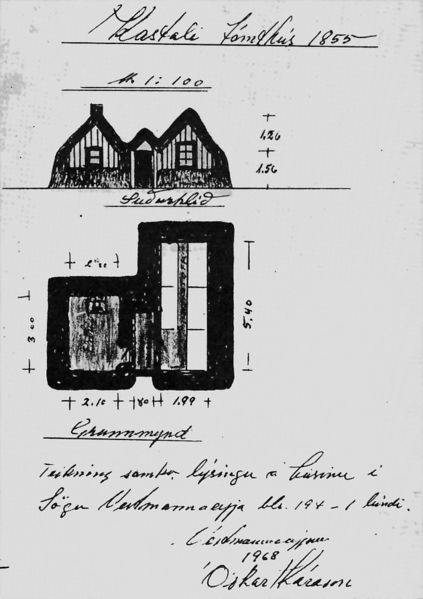 Kastali tómthús 1855
Mk 1: 100
1,20
1.56
Suðurhlið
3 00
5,40
2.10 80 1.99
Grunnmynd
Teikning samkv. lýsingu á húsinu í
Sögu Vestmannaeyja bls. 194 - 1 bindi.
Vestmannaeyjum
1968
Óskar Kárason